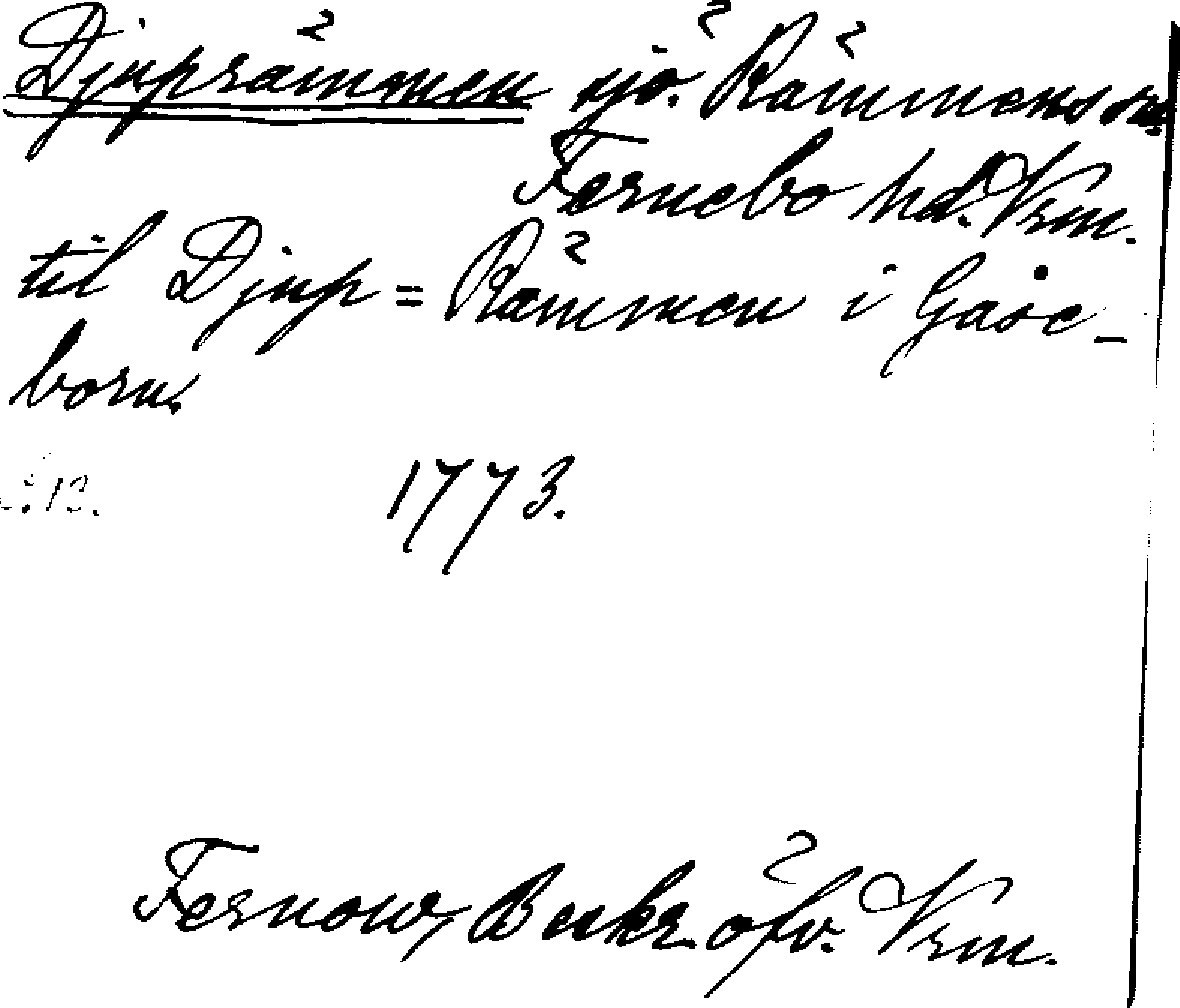 Djuprämmen sjö. Rämmens sn.
Fernebo hd. Vrm.
til Djup=Rämmen i Gåse-
born.
1773.
Fernow, Beskr. öfv. Vrm.